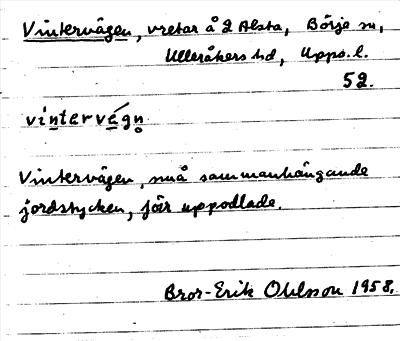 Vintervägen, vretar å 2 Alsta, Börje sn,
Ulleråkers hd, Upps. l.
52.
vintervégn̥
Vintervägen, små sammanhängande
jordstycken, förr uppodlade.
Bror-Erik Ohlsson 1958.